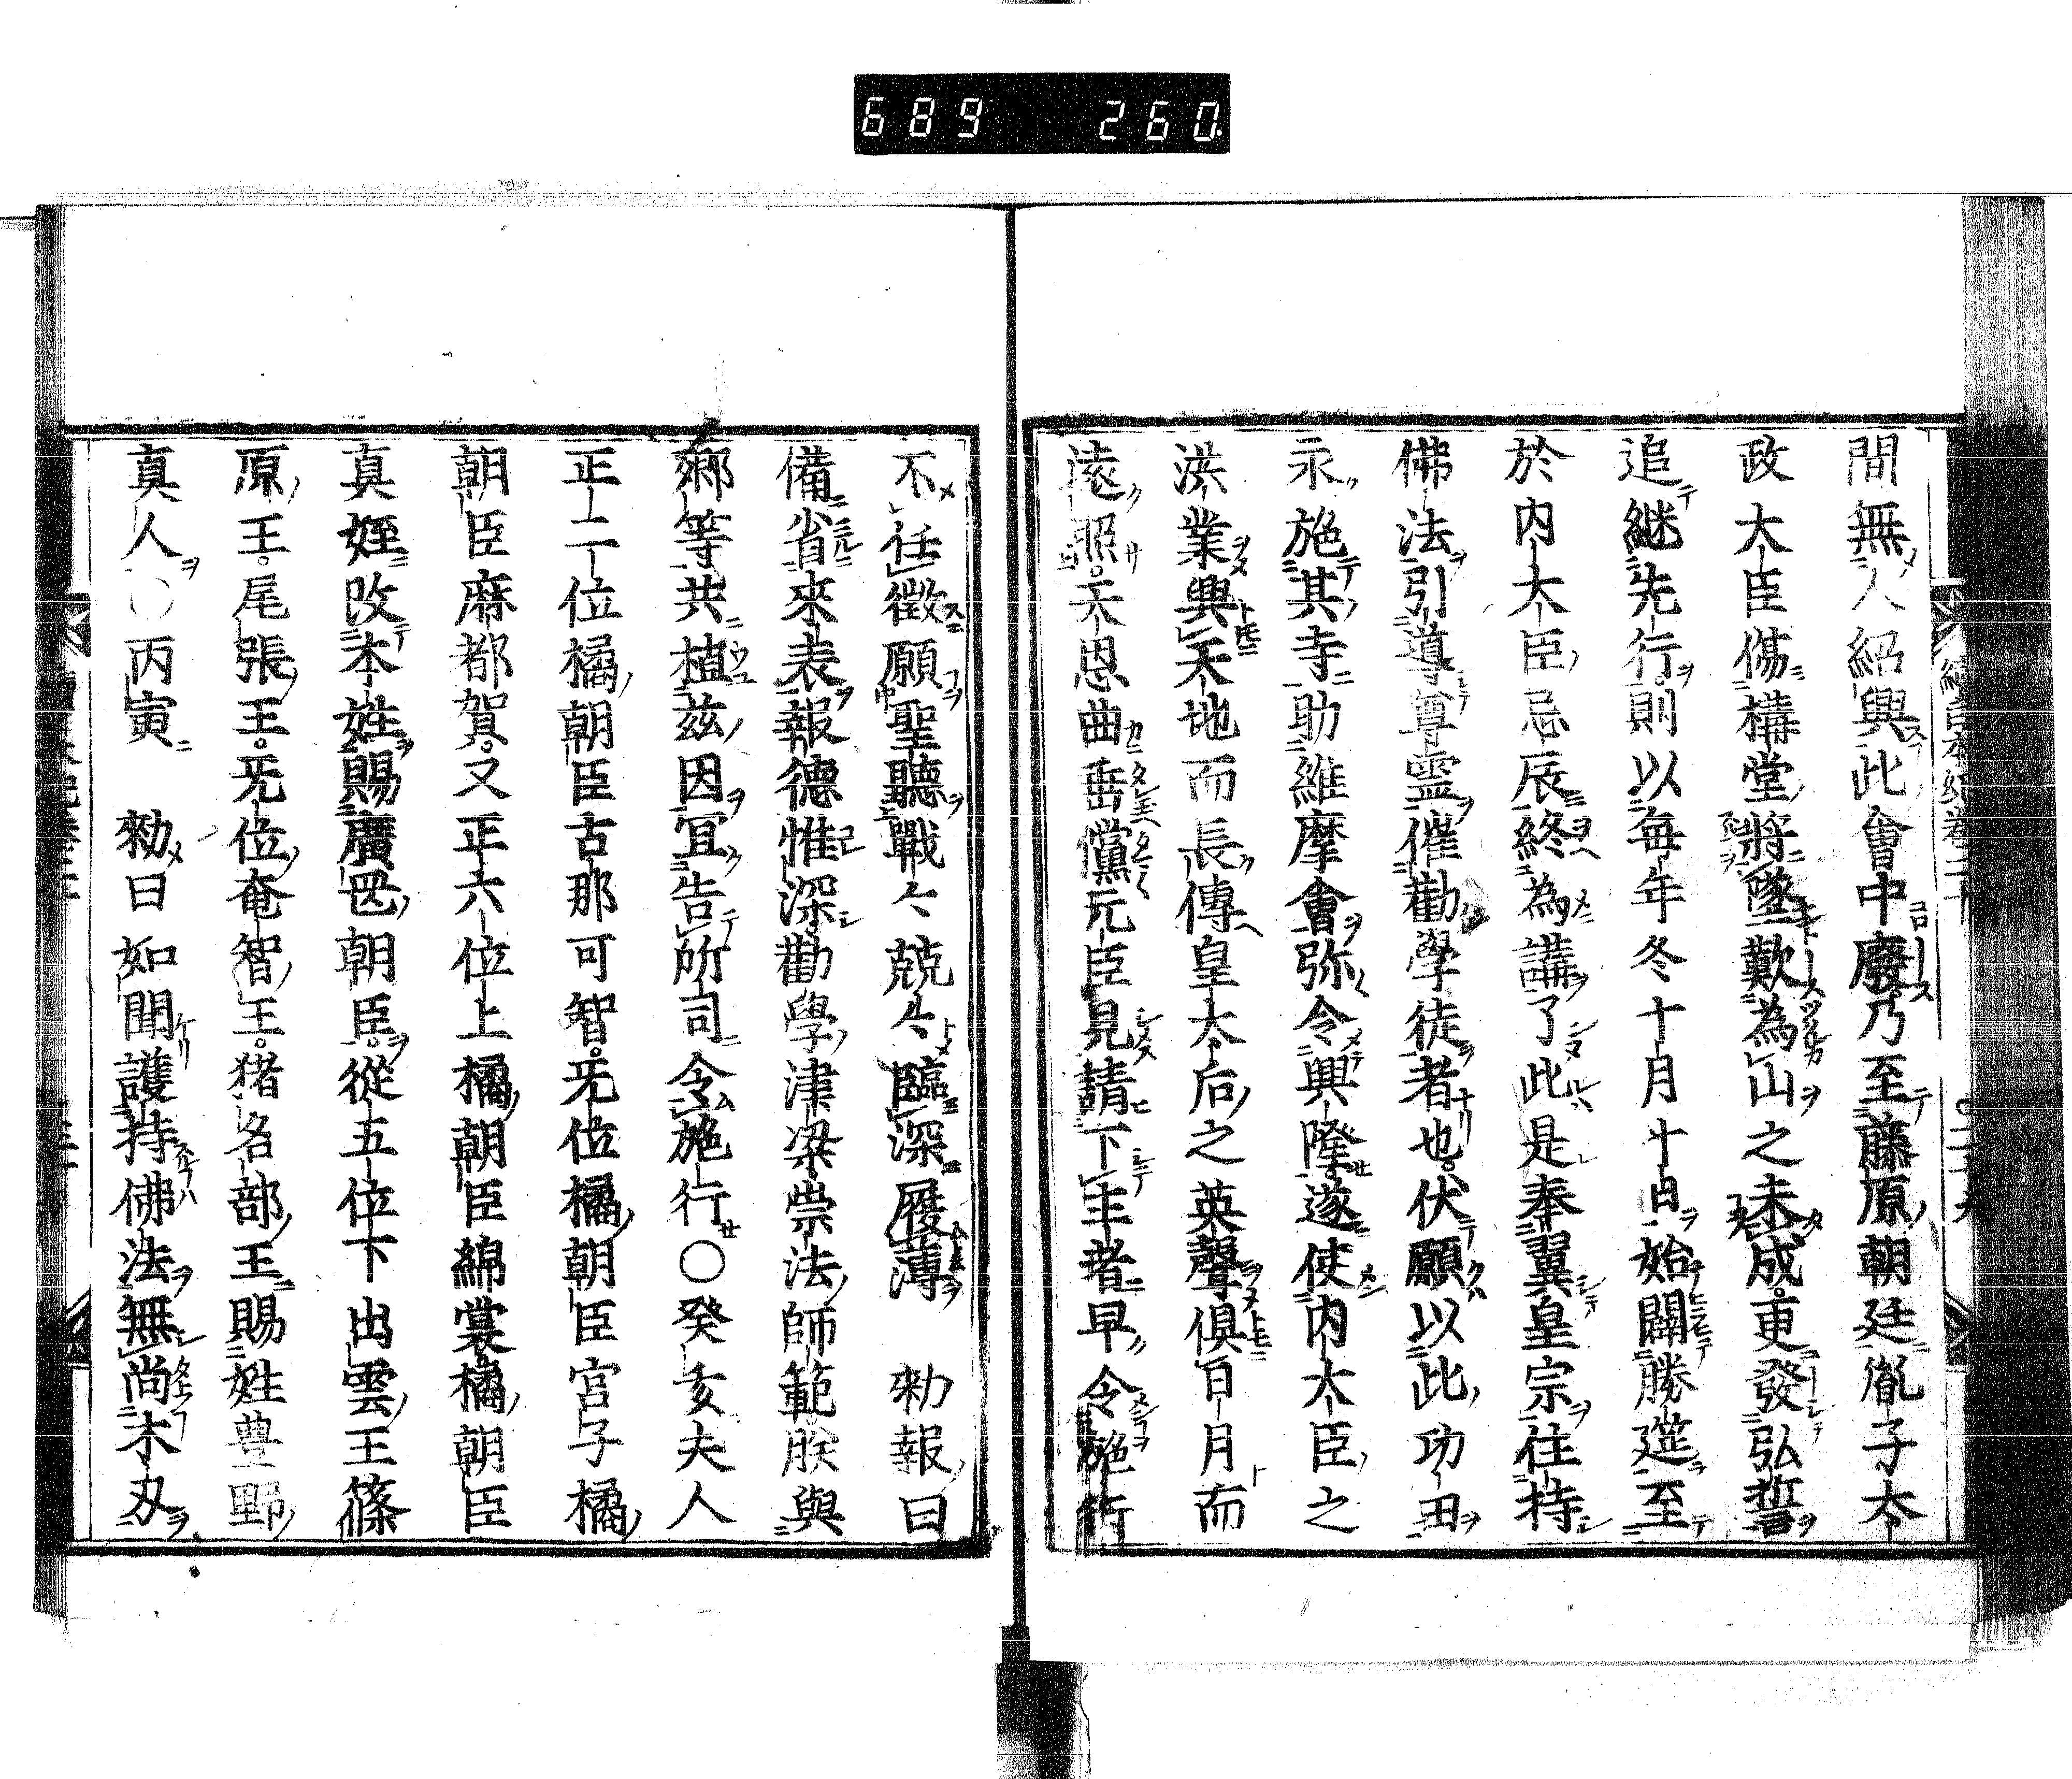 689 260.
間無人紹興此會中廢乃至藤原朝廷胤子太
政大臣傷構堂將墜歎為山之未成更發弘誓
追継先行則以毎年冬十月十日始闢勝筵至
於内大臣忌辰終為講了此是奉翼皇宗住持
佛法引導尊霊催勸學徒者也伏願以此功田
永施其寺助維摩會弥令興隆遂使内大臣之
洪業與天地而長傳皇太后之英聲倶日月而
遠照天恩曲垂儻允臣見請下主者早令施行
不任微願聖聽戰々兢々臨深履薄　勑報曰
備省來表報德惟深勸學津梁崇法師範朕與
卿等共植茲因宜告所司令施行〇癸亥夫人
正二位橘朝臣古那可智旡位橘朝臣宮子橘
朝臣麻都賀又正六位上橘朝臣綿裳橘朝臣
真姪改本姓賜廣岡朝臣從五位下出雲王篠
原王尾張王旡位奄智王猪名部王賜姓豊野
真人〇丙寅　勑曰如聞護持佛法無尚木叉